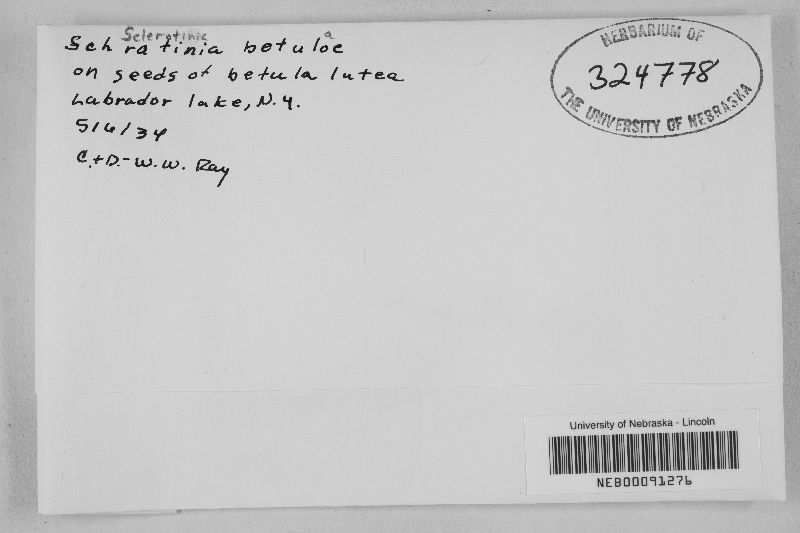 Sclerotinia a
Schratinia betuloe
on seeds of betula lutea
Labrador lake, N.Y.
5/6/34
C.+D.-W.W. Ray
HERBARIUM OF
324778
THE UNIVERSITY OF NEBRASKA
University of Nebraska - Lincoln
NEB00091276